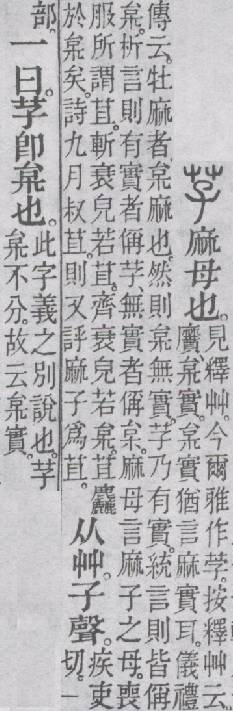 芓麻母也。見釋艸。今爾雅作茡。按釋艸云。
黂、枲實。枲實猶言麻實耳。儀禮
傳云。牡麻者、枲麻也。然則枲無實。芓乃有實。統言則皆偁
枲。析言則有實者偁芓。無實者偁枲。麻母言麻子之母。喪
服所謂苴。斬衰皃若苴。齊衰皃若枲。苴麤
於枲矣。詩九月叔苴。則又評麻子爲苴。从艸。子聲。疾吏
切。一
部。一曰。芓卽枲也。此字義之別說也。芓
枲不分。故云枲實。